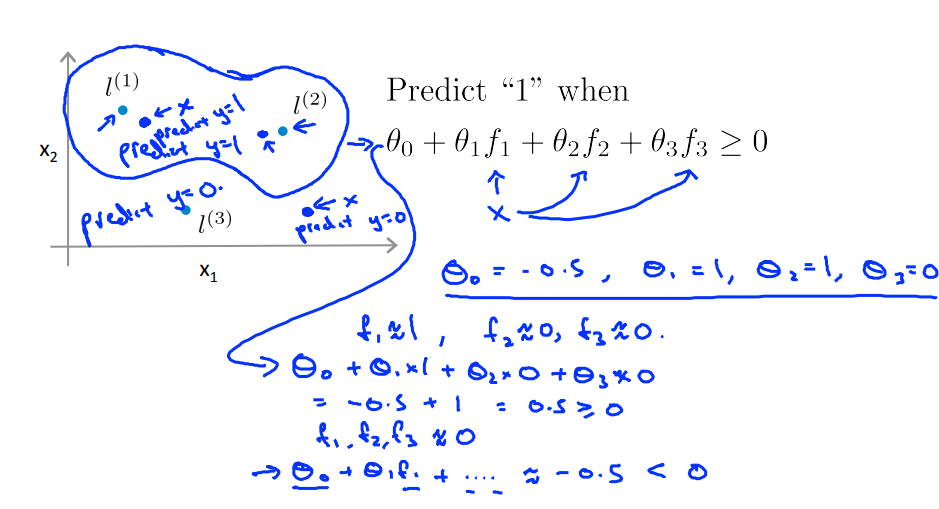 l^{(1)}
← x
predict y=1
l^{(2)}
predict y=1
x_2
predict y=0.
l^{(3)}
← x
predict y=0
x_1
Predict “1” when
θ_0 + θ_1 f_1 + θ_2 f_2 + θ_3 f_3 ≥ 0
x
θ_0 = -0.5, θ_1 = 1, θ_2 = 1, θ_3 = 0
f_1 ≈ 1, f_2 ≈ 0, f_3 ≈ 0.
→ θ_0 + θ_1 × 1 + θ_2 × 0 + θ_3 × 0
= -0.5 + 1 = 0.5 ≥ 0
f_1, f_2, f_3 ≈ 0
→ θ_0 + θ_1 f_1 + .... ≈ -0.5 < 0